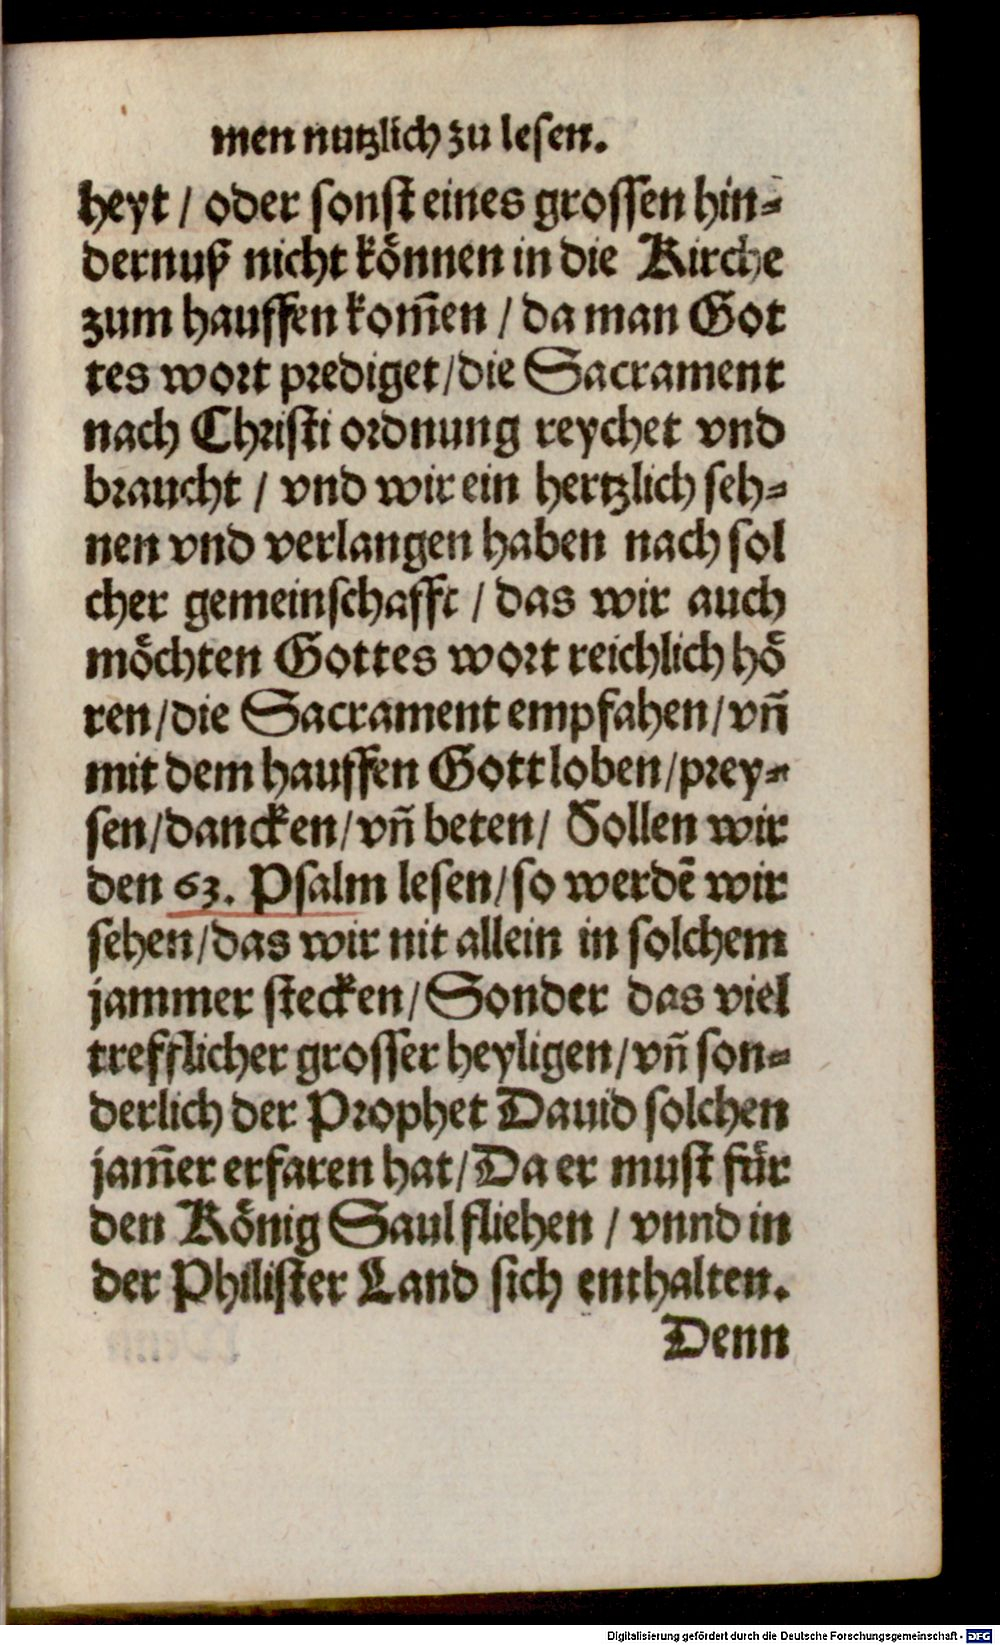 men nutzlich zu lesen.
heyt / oder sonst eines grossen hin-
dernuß nicht können in die Kirche
zum hauffen kom̄en / da man Got
tes wort prediget / die Sacrament
nach Christi ordnung reychet vnd
braucht / vnd wir ein hertzlich seh-
nen vnd verlangen haben nach sol
cher gemeinschafft / das wir auch
möchten Gottes wort reichlich hö
ren / die Sacrament empfahen / vn̄
mit dem hauffen Gott loben / prey-
sen / dancken / vn̄ beten / Sollen wir
den 63. Psalm lesen / so werdē wir
sehen / das wir nit allein in solchem
jammer stecken / Sonder das viel
trefflicher grosser heyligen / vn̄ son-
derlich der Prophet Dauid solchen
jam̄er erfaren hat / Da er must für
den König Saul fliehen / vnnd in
der Philister Land sich enthalten.
Denn
Digitalisierung gefördert durch die Deutsche Forschungsgemeinschaft - DFG